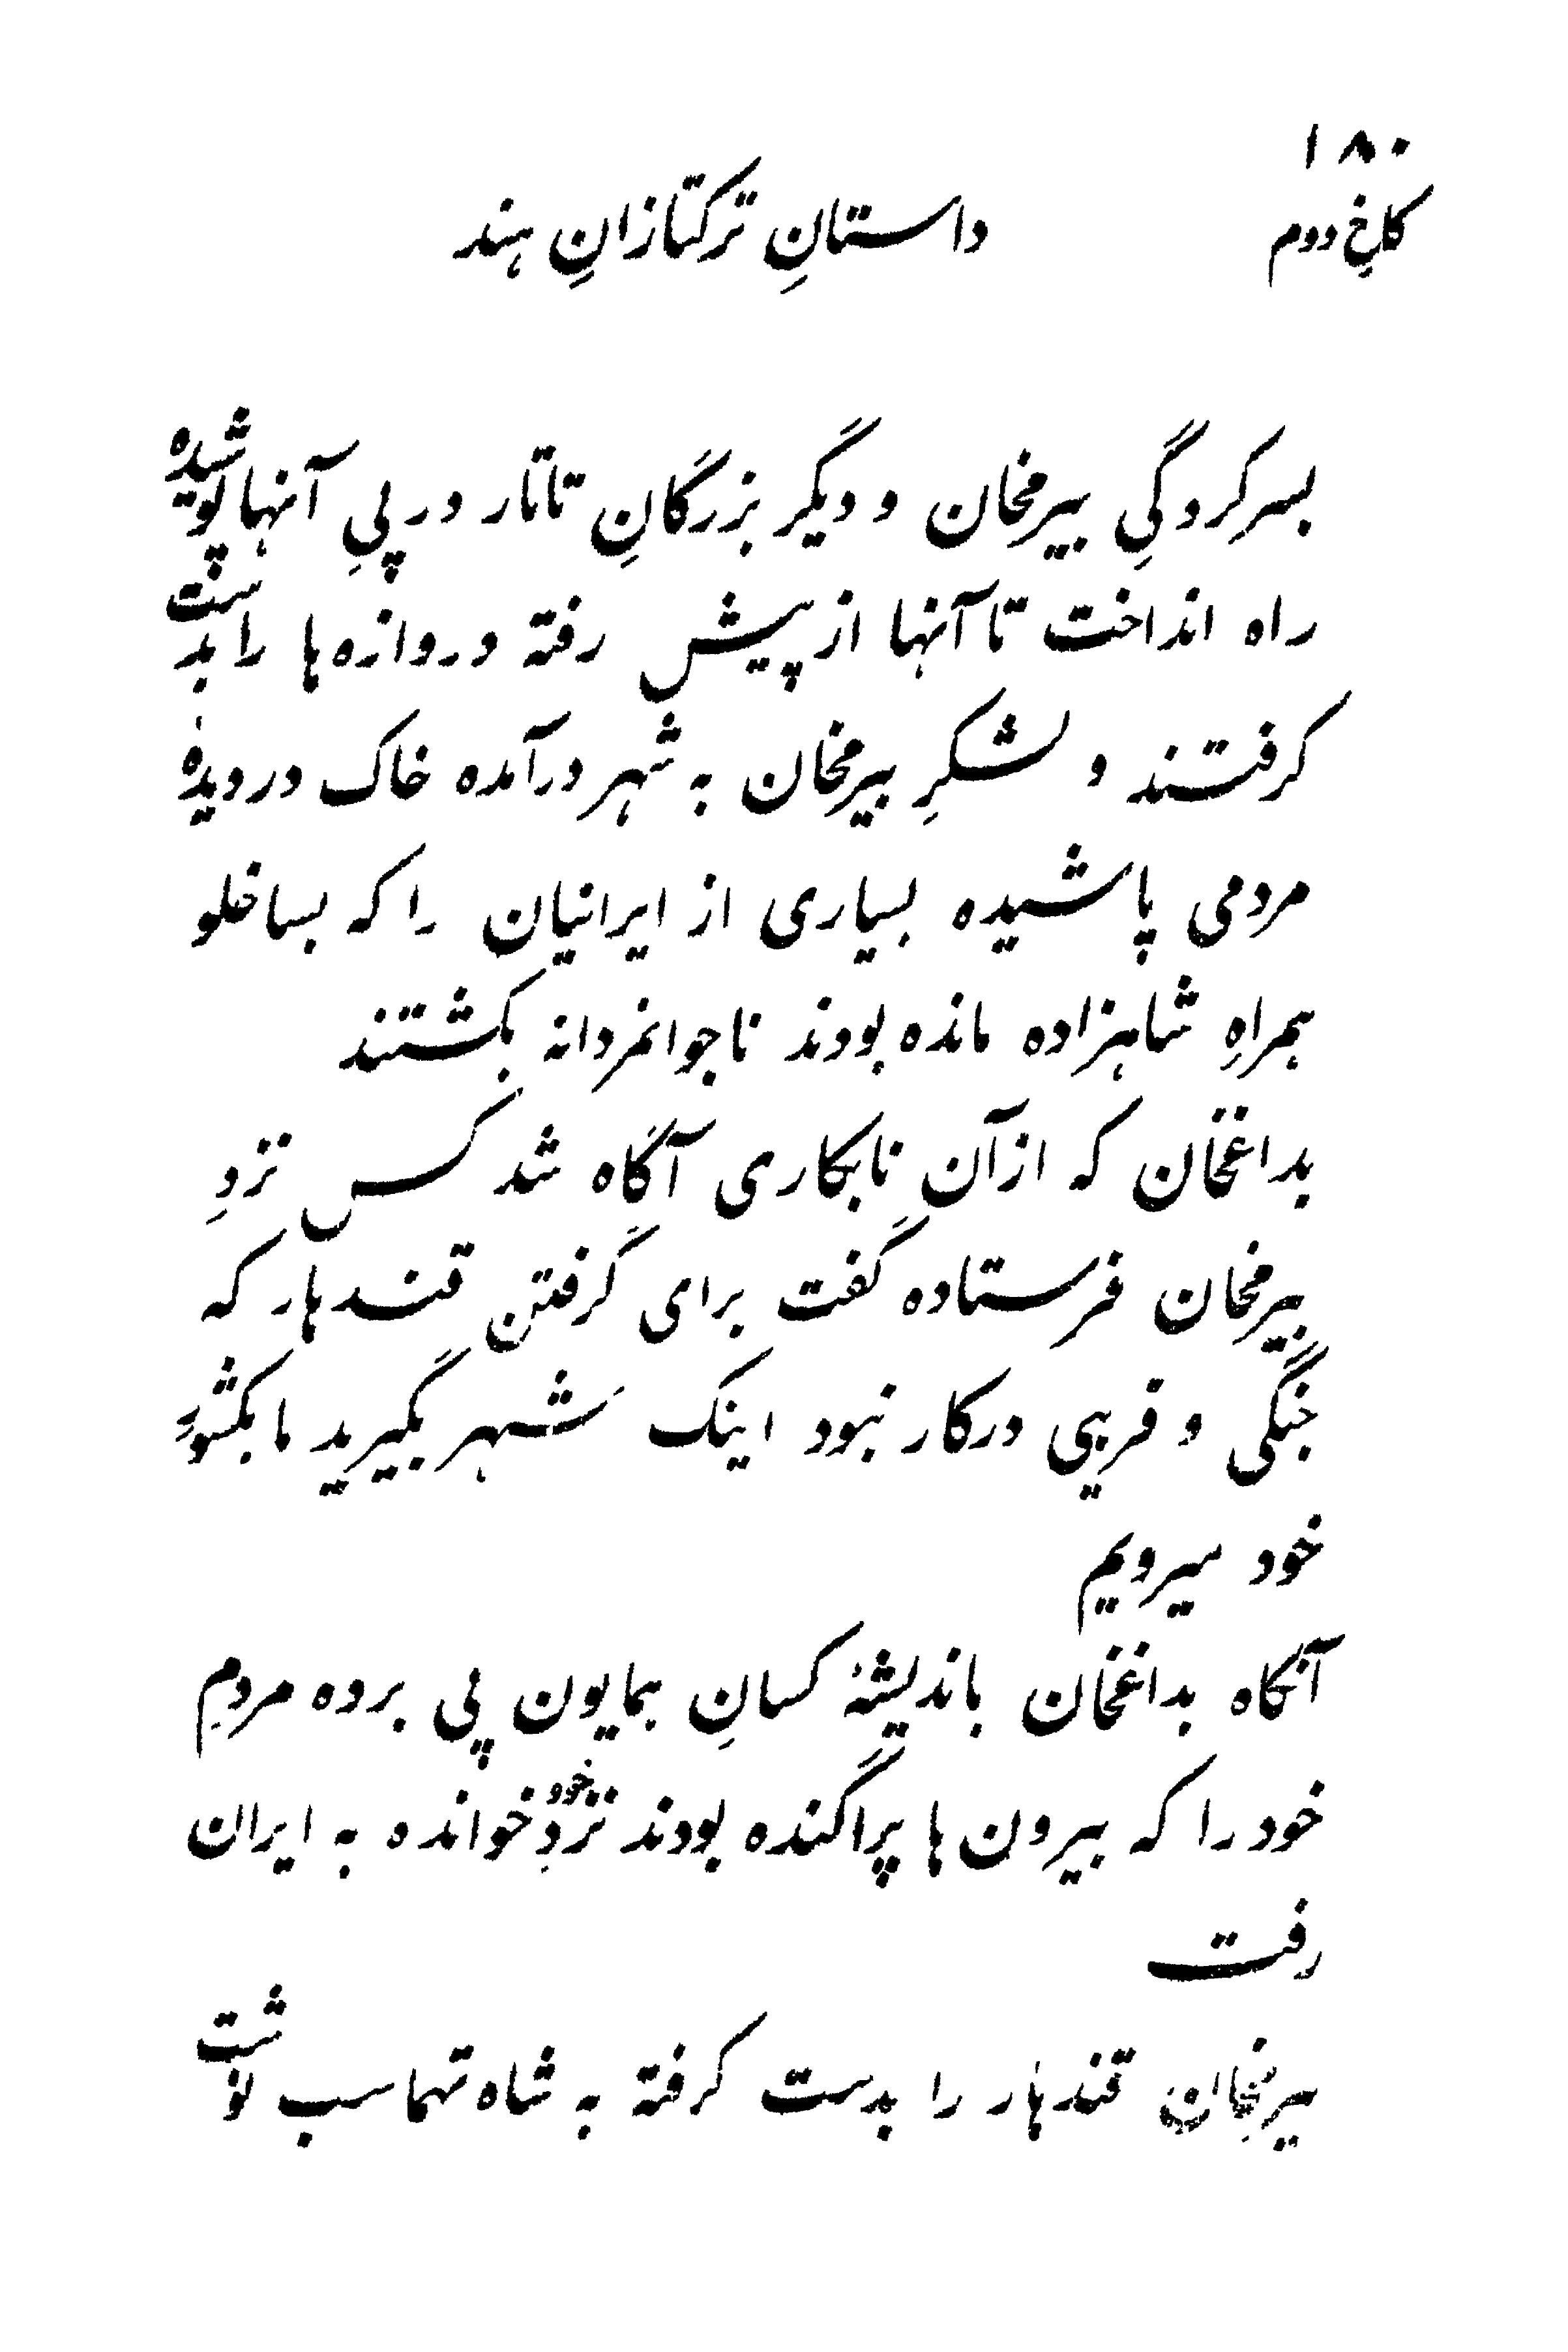 ۱۸۰
کاخِ دوم
داستانِ ترکتازانِ هند
بسرکردگیِ بیرمخان و دیگر بزرگانِ تاتار در پیِ آنها پوشیده
راه انداخت تا آنها از پیش رفته دروازه ها را بدست
گرفتند و لشکرِ بیرمخان به شهر درآمده خاک در دیدهٔ
مردمی پاشیده بسیاری از ایرانیان را که بساخلو
همراهِ شاهزاده مانده بودند ناجوانمردانه بکشتند
بداغخان که از آن نابکاری آگاه شد کس نزدِ
بیرمخان فرستاده گفت برای گرفتن قندهار که
جنگی و فریبی درکار نبود اینک شهر بگیرید ما بکشورِ
خود میرویم
آنگاه بداغخان باندیشهٔ کسانِ همایون پی برده مردمِ
خود را که بیرون ها پراگنده بودند نزدِ خود خوانده به ایران
رفت
بیرمخان قندهار را بدست گرفته به شاه تهماسب نوشت